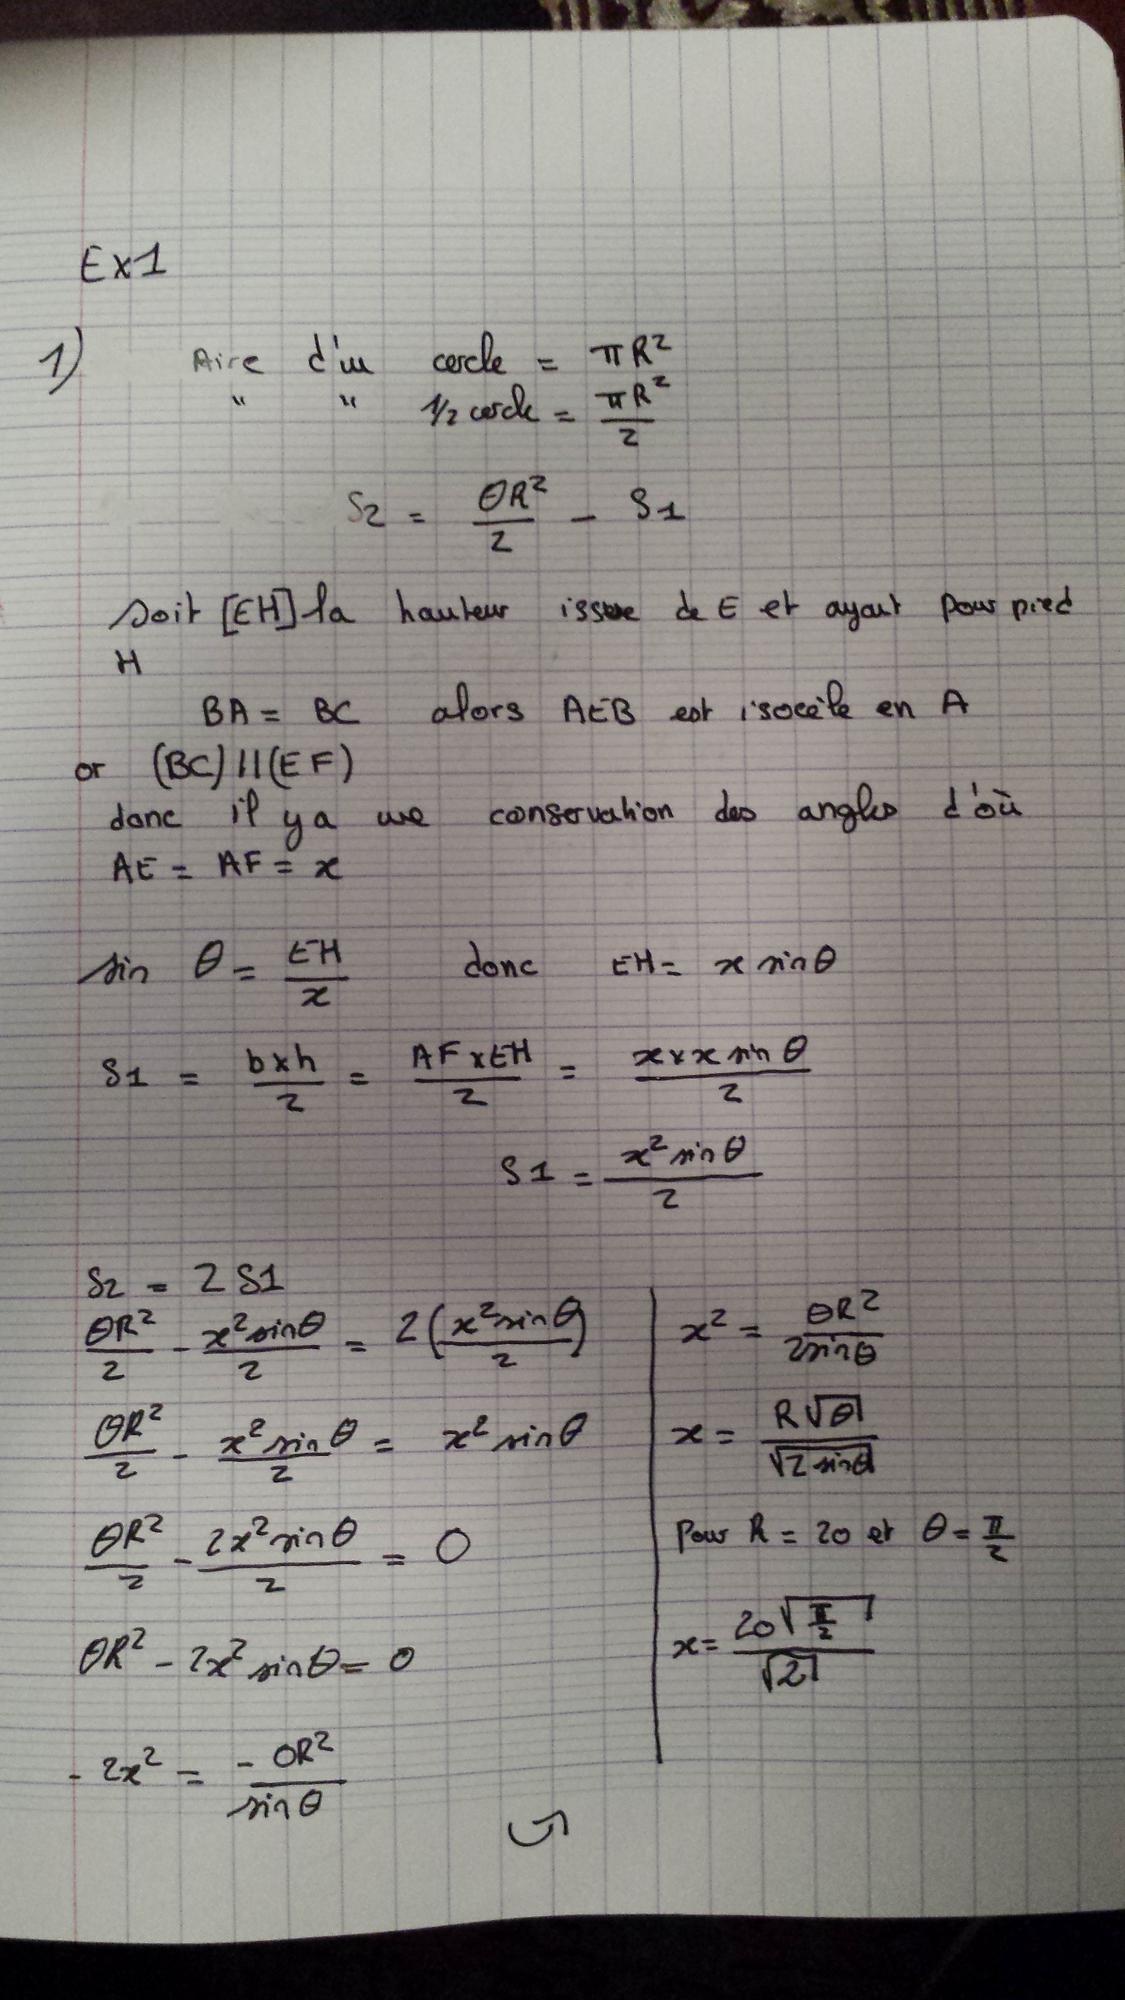 Ex1
1) Aire d'un cercle = πR²
" " 1/2 cercle = πR²/2
S2 = θR²/2 - S1
soit [EH] la hauteur issue de E et ayant pour pied
H
BA = BC alors AEB est isocèle en A
or (BC)//(EF)
donc il y a une conservation des angles d'où
AE = AF = x
sin θ = EH/x donc EH = x sinθ
S1 = b×h/2 = AF×EH/2 = x×x sin θ/2
S1 = x² sin θ/2
S2 = 2 S1
θR²/2 - x² sinθ/2 = 2(x² sinθ/2)
θR²/2 - x² sin θ/2 = x² sin θ
θR²/2 - 2x² sin θ/2 = 0
θR² - 2x² sinθ = 0
- 2x² = - θR²/sin θ
x² = θR²/2sinθ
x = R√θ/√2 sinθ
Pour R = 20 et θ = π/2
x = 20√π/2/√2